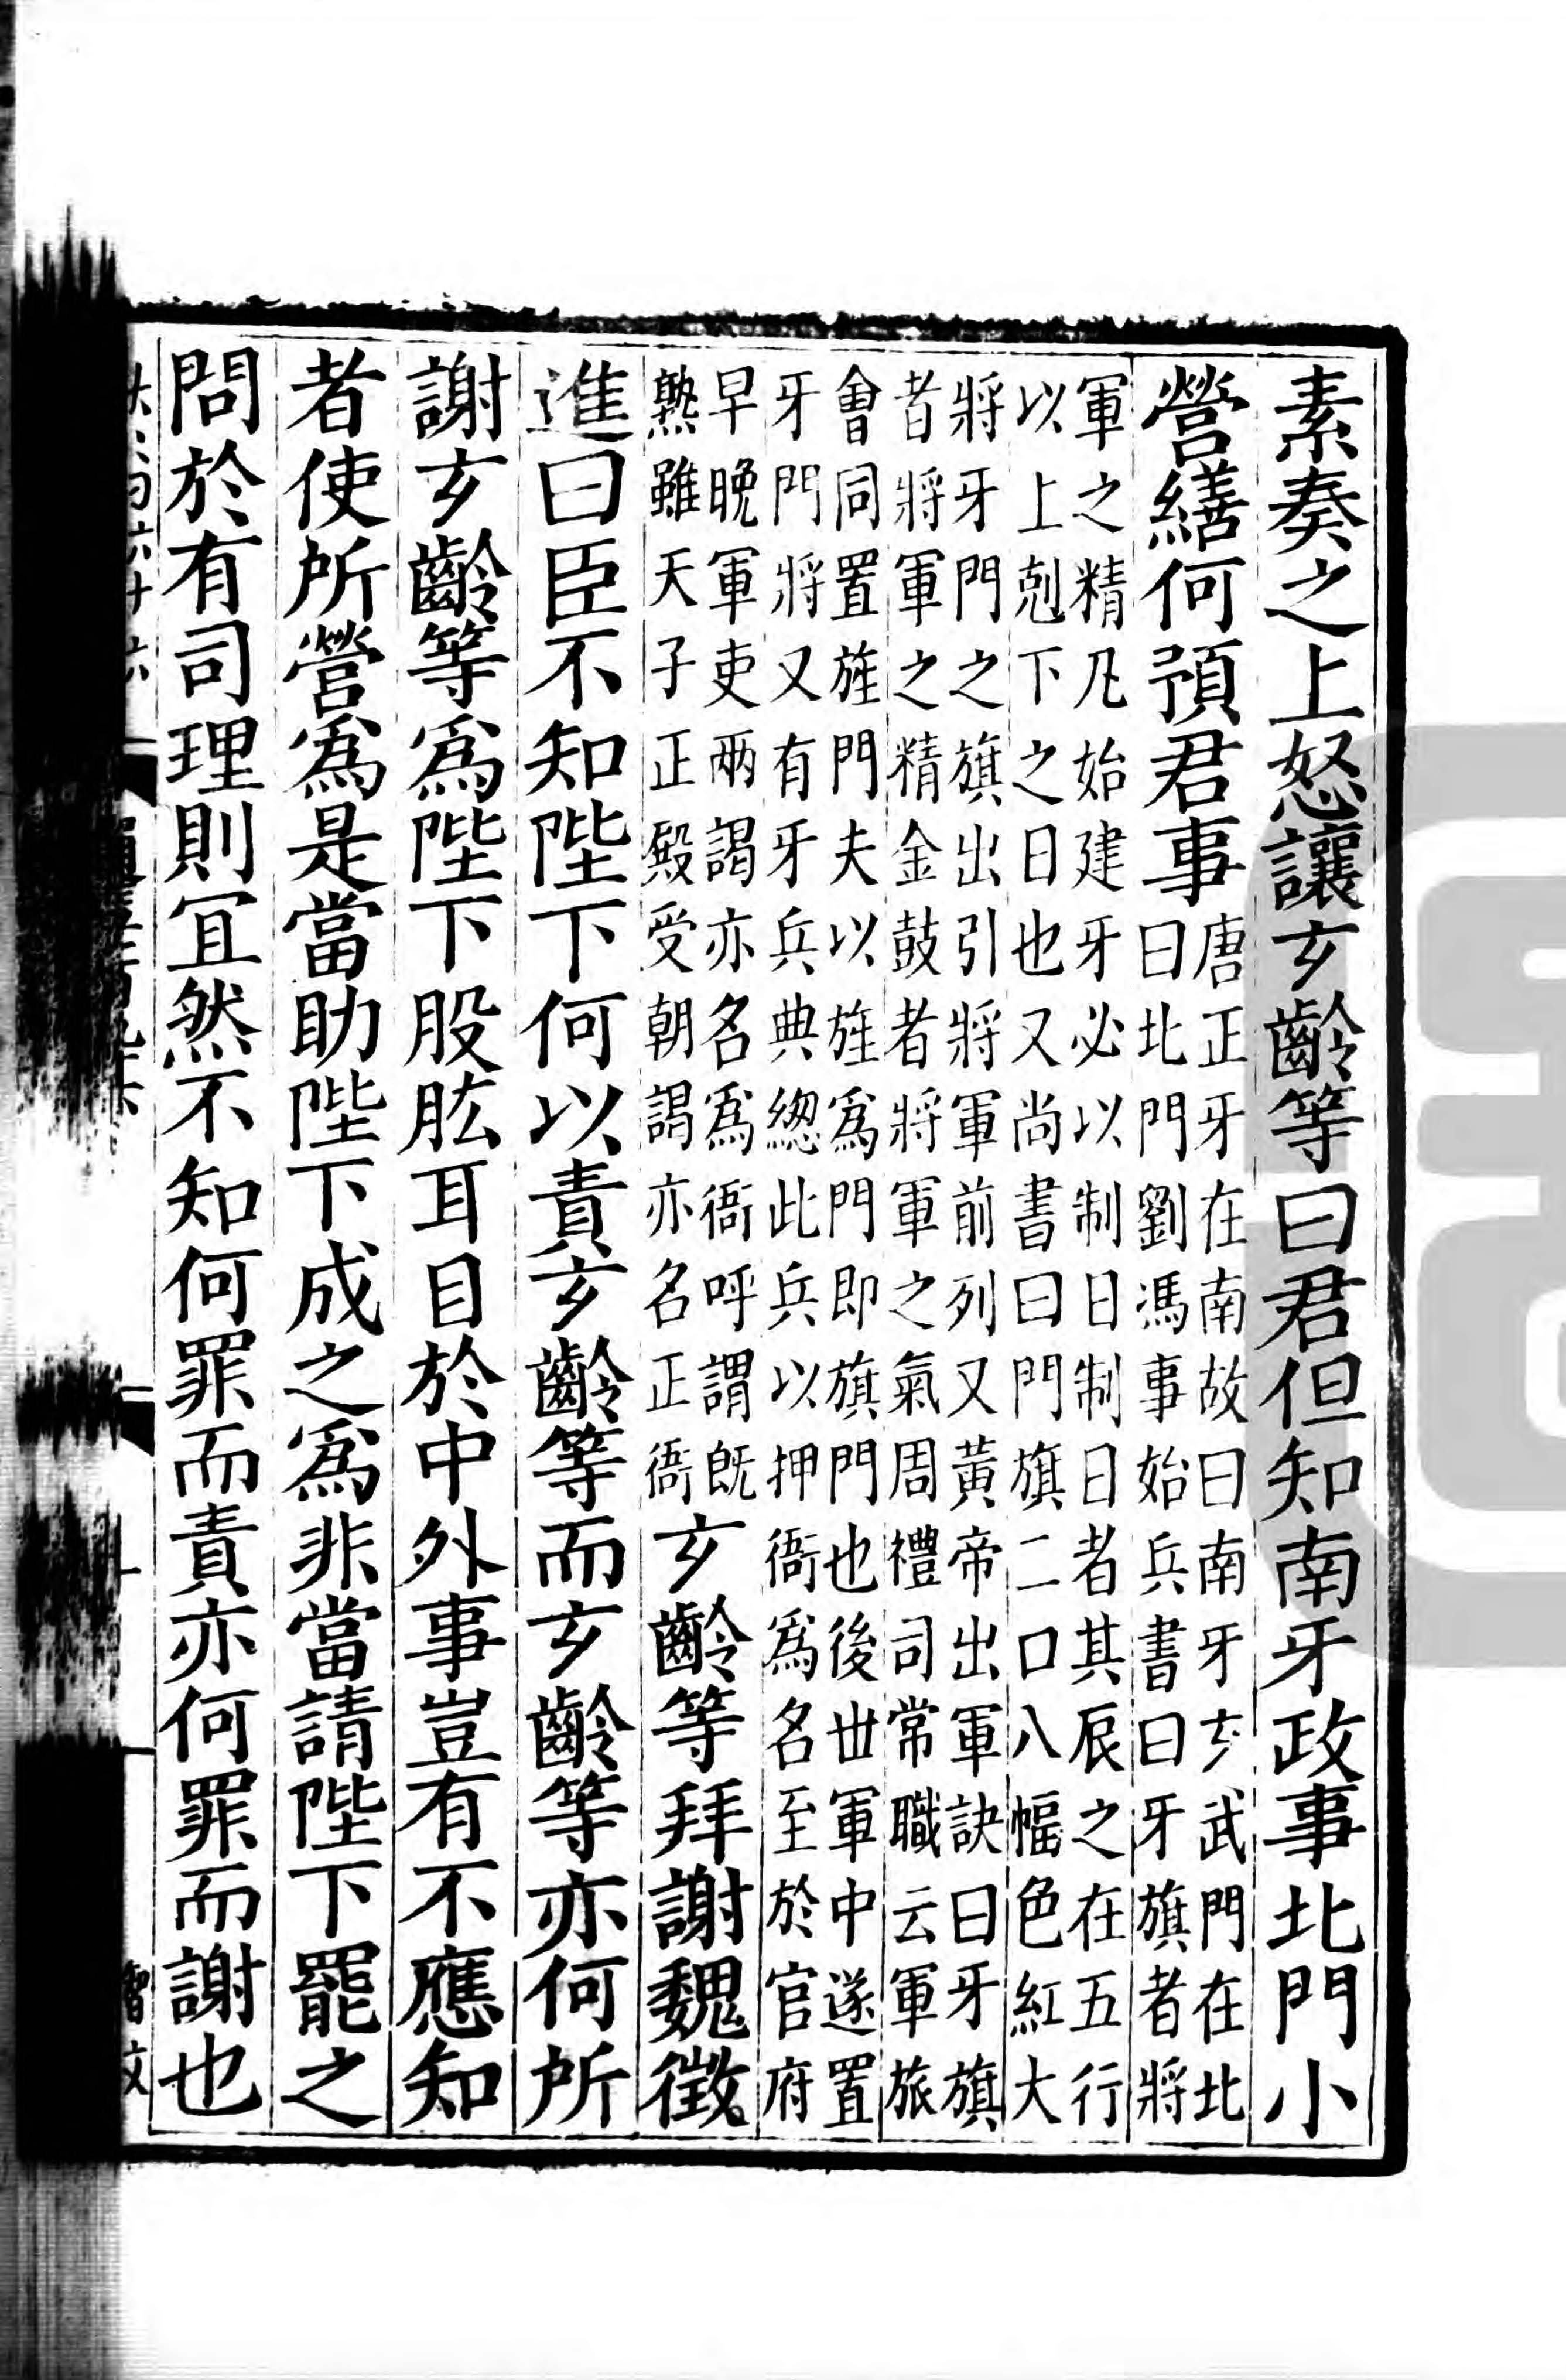 素奏之上怒讓𤣥齡等曰君但知南牙政事北門小
營繕何預君事唐正牙在南故曰南牙𤣥武門在北
曰北門劉馮事始兵書曰牙旗者將
軍之精凡始建牙必以制日制日者其辰之在五行
以上剋下之日也又尚書曰門旗二口八幅色紅大
將牙門之旗出引將軍前列又黃帝出軍訣曰牙旗
者將軍之精金鼓者將軍之氣周禮司常職云軍旅
會同置旌門夫以旌為門即旗門也後世軍中遂置
牙門將又有牙兵典總此兵以押衙為名至於官府
早晚軍吏兩謁亦名為衙呼謂既
熟雖天子正殿受朝謁亦名正衙𤣥齡等拜謝魏徵
進曰臣不知陛下何以責𤣥齡等而𤣥齡等亦何所
謝𤣥齡等為陛下股肱耳目於中外事豈有不應知
者使所營為是當助陛下成之為非當請陛下罷之
問於有司理則宜然不知何罪而責亦何罪而謝也